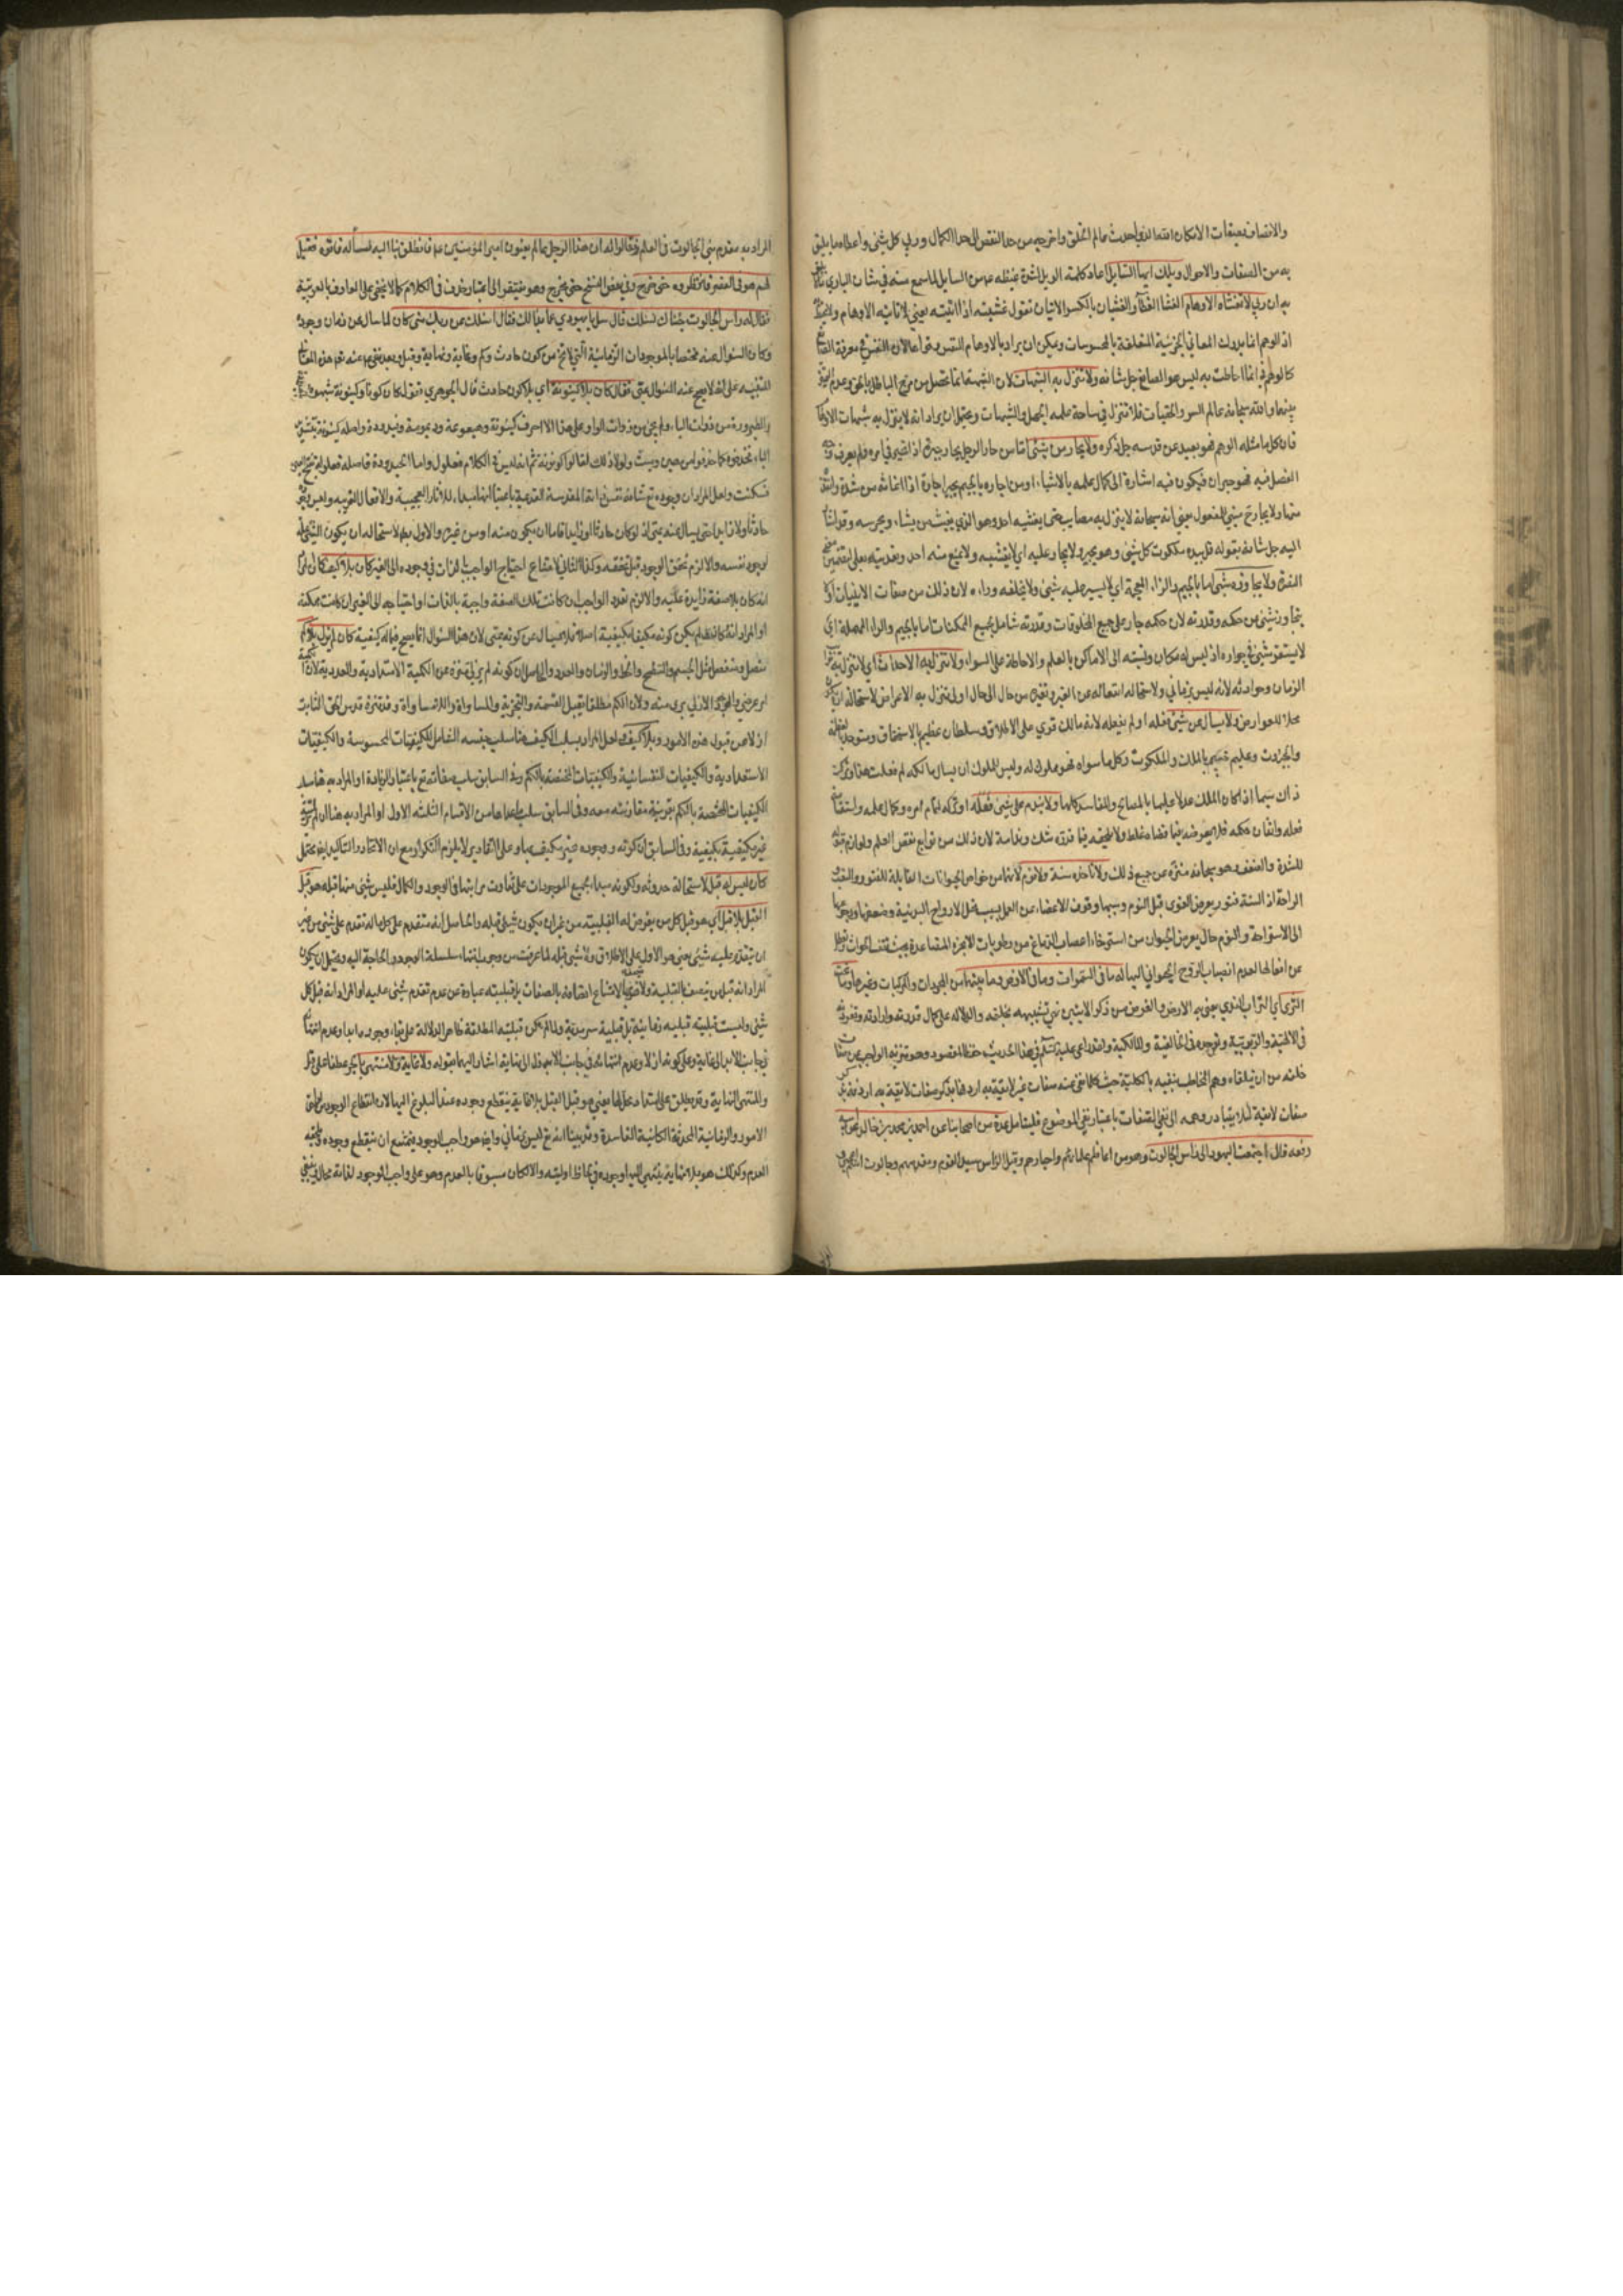 والاتصاف بصفات الامكان الله الذي احدث عالم الخلق واخرجه من حد النقص الى حد الكمال وربي كل شئ واعطاه ما يليق
به من الصفات والاحوال ويلك ايها السايل اعاد كلمة الويل لشدة غيظه عن السايل لما سمع منه في شان الباري
ان ربي لا تغشاه الاوهام الغشاء الغطاء والغشيان بالكسر الاتيان تقول غشيته اذا اتيته يعني لا تاتيه الاوهام
اذ الوهم انما يدرك المعاني الجزئية المتعلقة بالمحسوسات ويمكن ان يراد بالاوهام النفس في معرفة
به ليس هو الصانع جل شانه ولا تنزل به الشبهات لان الشبهة انما تحصل من مزج الباطل بالحق وعدم
بينهما والله سبحانه عالم السر والخفيات فلا تنزل في ساحة علمه الجهل والشبهات ويحتمل ان يراد انه لا ينزل به شبهات
فان كل ما مثله الوهم فهو بعيد عن قدسه جل ذكره ولا يحار من شئ اما من حار الرجل يحار حيرة اذا تحير في امره فلم يعرف
الفصل فيه فهو حيران فيكون فيه اشارة الى كمال علمه بالاشياء او من اجاره بالجيم يجير اجارة اذا اغاثه من شدة
منها ولا يجار ح مبني للمفعول يعني انه سبحانه لا ينزل به مصايب حتى يغيثه احد وهو الذي يغيث من يشاء ويحرسه
اليه جل شانه بقوله قل بيده ملكوت كل شئ وهو يجير ولا يجار عليه اي لا يغيثه ولا يمنع منه احد وتعديته بعلى لتضمين
النصرة ولا يجاوزه شئ اما بالجيم والزاء المعجمة اي لا يسير عليه شئ ولا يخلفه وراءه لان ذلك من صفات
يتجاوز شئ من حكمه وقدرته لان حكمه جار على جميع المخلوقات وقدرته شامل بجميع الممكنات اما بالجيم والراء المهملة اي
لا يستقر شئ في جواره اذ ليس له مكان ونسبته الى الاماكن بالعلم والاحاطة على السواء ولا تنزل به الاحداث اي لا تنزل به
الزمان وحوادثه لانه ليس بزماني ولاستحالة انتقاله عن التغير وتغيره من حال الى حال او لا تنزل به الاعراض لاستحالة
محلا للعوارض ولا يسال عن شئ فعله او لم يفعله لانه مالك قوي على الاطلاق وسلطان عظيم بالاستحقاق ومتوحد
والجبروت وعليم بالملك والملكوت وكل ما سواه فهو مملوك له وليس للملوك ان يسال مالكه لم فعلت هذا وتركت
ذاك سيما اذا كان الملك عدلا عليما بالمصالح والمفاسد كلها ولا يندم على شئ فعله او تركه لتمام امره وكمال علمه
فعله واتقان حكمه فلا يعرضه فيما قضاه غلط ولا يلحقه فيما قدره شك وندامة لان ذلك من توابع نقص العلم
للشدة والضعف وهو سبحانه منزه عن جميع ذلك ولا تاخذه سنة ولا نوم لانهما من خواص الحيوانات القابلة للفتور
الراحة اذ السنة فتور يعرض القوى قبل النوم وسببها وقوف الاعضاء عن العمل بسبب تحلل الارواح البدنية وضعفها
الى الاستراحة والنوم حال يعرض الحيوان من استرخاء اعصاب الدماغ من رطوبات الابخرة المتصاعدة بحيث تقف الحواس
عن افعالها لعدم انصباب الروح الحيواني اليها له ما في السموات وما في الارض وما بينهما من المجردات والمركبات وغيرها وما تحت
الثرى اي التراب الندي يعني به الارض والغرض من ذكر الايتين نفي تشبيهه بخلقه والدلالة على كمال قدرته وارادته وتفرده
في الالهية والربوبية وتوحده في الخالقية والمالكية ولقد راعى عليه السلام في هذا الحديث المقصود وهو تنزيه الواجب عن
خلقه من وهم المخاطب بنفيه بالكلية حيث كلما نفى عنه صفات غير لايقة به اردفها بذكر صفات لايقة به
صفات لايقة لئلا يتبادر وهمه الى نفي الصفات باعتبار نفي الموضوع فليتامل عدة من اصحابنا عن احمد بن محمد بن خالد
رفعه قال اجتمعت اليهود الى راس الجالوت وهو من اعاظم علمائهم واحبارهم وقيل الراس سيد القوم ومقدمهم وجالوت
المراد به مقدم بني الجالوت في العلم فقالوا له ان هذا الرجل عالم يعنون امير المؤمنين عم فانطلق بنا اليه نساله فاتوه فقيل
لهم هو في القصر فانتظروه حتى خرج وفي بعض النسخ حتى يخرج وهو يفتقر الى اعتبار حذف في الكلام كما لا يخفى على العارف بالعربية
فقال له راس الجالوت جئناك نسئلك قال سل يا يهودي عما بدا لك فقال اسئلك عن ربك متى كان لما سال عن زمان وجوده
وكان السؤال عنه مختصا بالموجودات الزمانية التي لا تخ من كون حادث وكم وغاية ونهاية وقبل وبعد نفى عنه تعالى هذه
للتنبيه على انه لا يصح عنه السؤال بمتى فقال كان بلا كينونة اي بلا كون حادث قال الجوهري تقول كان كونا وكينونة شبهوه
والطيرورة من ذوات الياء ولم يجئ من ذوات الواو على هذا الا احرف كينونة وهيعوعة وديمومة وقيدودة واصله كينونة بتشديد
الياء فحذفوا كما حذفوا من هين وميت ولولا ذلك لقالوا كونونة ثم انه ليس في الكلام فعلول واما الحيدودة فاصله فعلولة بفتح العين
فسكنت ولعل المراد ان وجوده تع شانه نفس ذاته المقدسة القديمة باعتبار انها مبدء للاثار العجيبة والافعال الغريبة وليس
حادثا ولا زايدا حتى يسال عنه بمتى اذ لو كان حادثا او زايدا فاما ان يكون منه او من غيره والاول بط لاستحالة ان يكون الشئ علة
لوجود نفسه والا لزم تحقق الوجود قبل تحققه وكذا الثاني لامتناع احتياج الواجب بالذات في وجوده الى الغير كان بلا كيف
انه كان بلا صفة زايدة عليه والا لزم تعدد الواجب ان كانت تلك الصفة واجبة بالذات او احتياجه الى الغير ان كانت ممكنة
او المراد انه كان لم يكن كونه مكيفا بكيفية اصلا فلا يسال عن كونه بمتى لان هذا السؤال انما يصح فيما له كيفية كان لم يزل بلا كم
متصل ومنفصل مثل الجسم والسطح والخط والزمان والعدد والحاصل ان كونه لم يزلي منزه عن الكمية الامتدادية والعددية لان
امر عرضي والازلي بري منه ولان الكم مطلقا يقبل القسمة والتجزية والمساواة واللامساواة وقد تنزه قدس الحق الثابت
ازلا عن قبول هذه الامور وبلا كيف لعل المراد بسلب الكيف هنا سلب جنسه الشامل للكيفيات المحسوسة والكيفيات
الاستعدادية والكيفيات النفسانية والكيفيات المختصة بالكم وفي السابق سلب صفاته تع باعتبار الزيادة او المراد به هنا سلب
الكيفيات المختصة بالكم بقرينة مقارنته معه وفي السابق سلب ما عداها من الاقسام الثلثة الاول او المراد به هنا ان
غير مكيفة بكيفية وفي السابق ان كونه ووجوده غير مكيف بها وعلى التقادير لا يلزم التكرار مع ان الاتحاد والتاكيد ايضا محتمل
كان ليس له قبل لاستحالة حدوثه ولكونه مبدا لجميع الموجودات على تفاوت مراتبها في الوجود والكمال فليس شئ منها قبله هو قبل
القبل بلا قبل اي هو قبل كل من يعرض له القبلية من غير ان يكون شئ قبله والحاصل انه متقدم على كل ما له تقدم على شئ من غير
ان يتقدم عليه شئ يعني هو الاول على الاطلاق ولا شئ قبله لما عرفت من وجوب انتهاء سلسلة الوجود والحاجة اليه ويحتمل ان يكون
المراد انه قبل من يتصف بالقبلية ولا لامتناع اتصافه بالصفات بل قبليته عبارة عن عدم تقدم شئ عليه او المراد انه قبل كل
شئ وليست قبليته قبلية زمانية بل قبلية سرمدية ولما لم يكن قبليته المطلقة ظاهر الدلالة على بقاء وجوده ابدا وعدم
في جانب الابد لا غاية وعلى كونه ازلا وعدم انتهائه في جانب الابد ذا الى النهاية اشار اليهما بقوله ولا غاية ولا منتهى بالجر عطفا على قبل
والمنتهى النهاية وقد يطلق على امتداد يعني هو قبل القبل بلا غاية ينقطع وجوده عند البلوغ اليها لان انقطاع الوجود من
الامور والزمانية المحدثة الكائنة الفاسدة وقد بينا انه تع ليس بزماني وايضا هو واجب الوجود فيمتنع ان ينقطع وجوده
العدم وكذلك هو بلا نهاية ينتهي اليها وجوده في لحاظ اوليته والا لكان مسبوقا بالعدم وهو على واجب الوجود لذاته محال